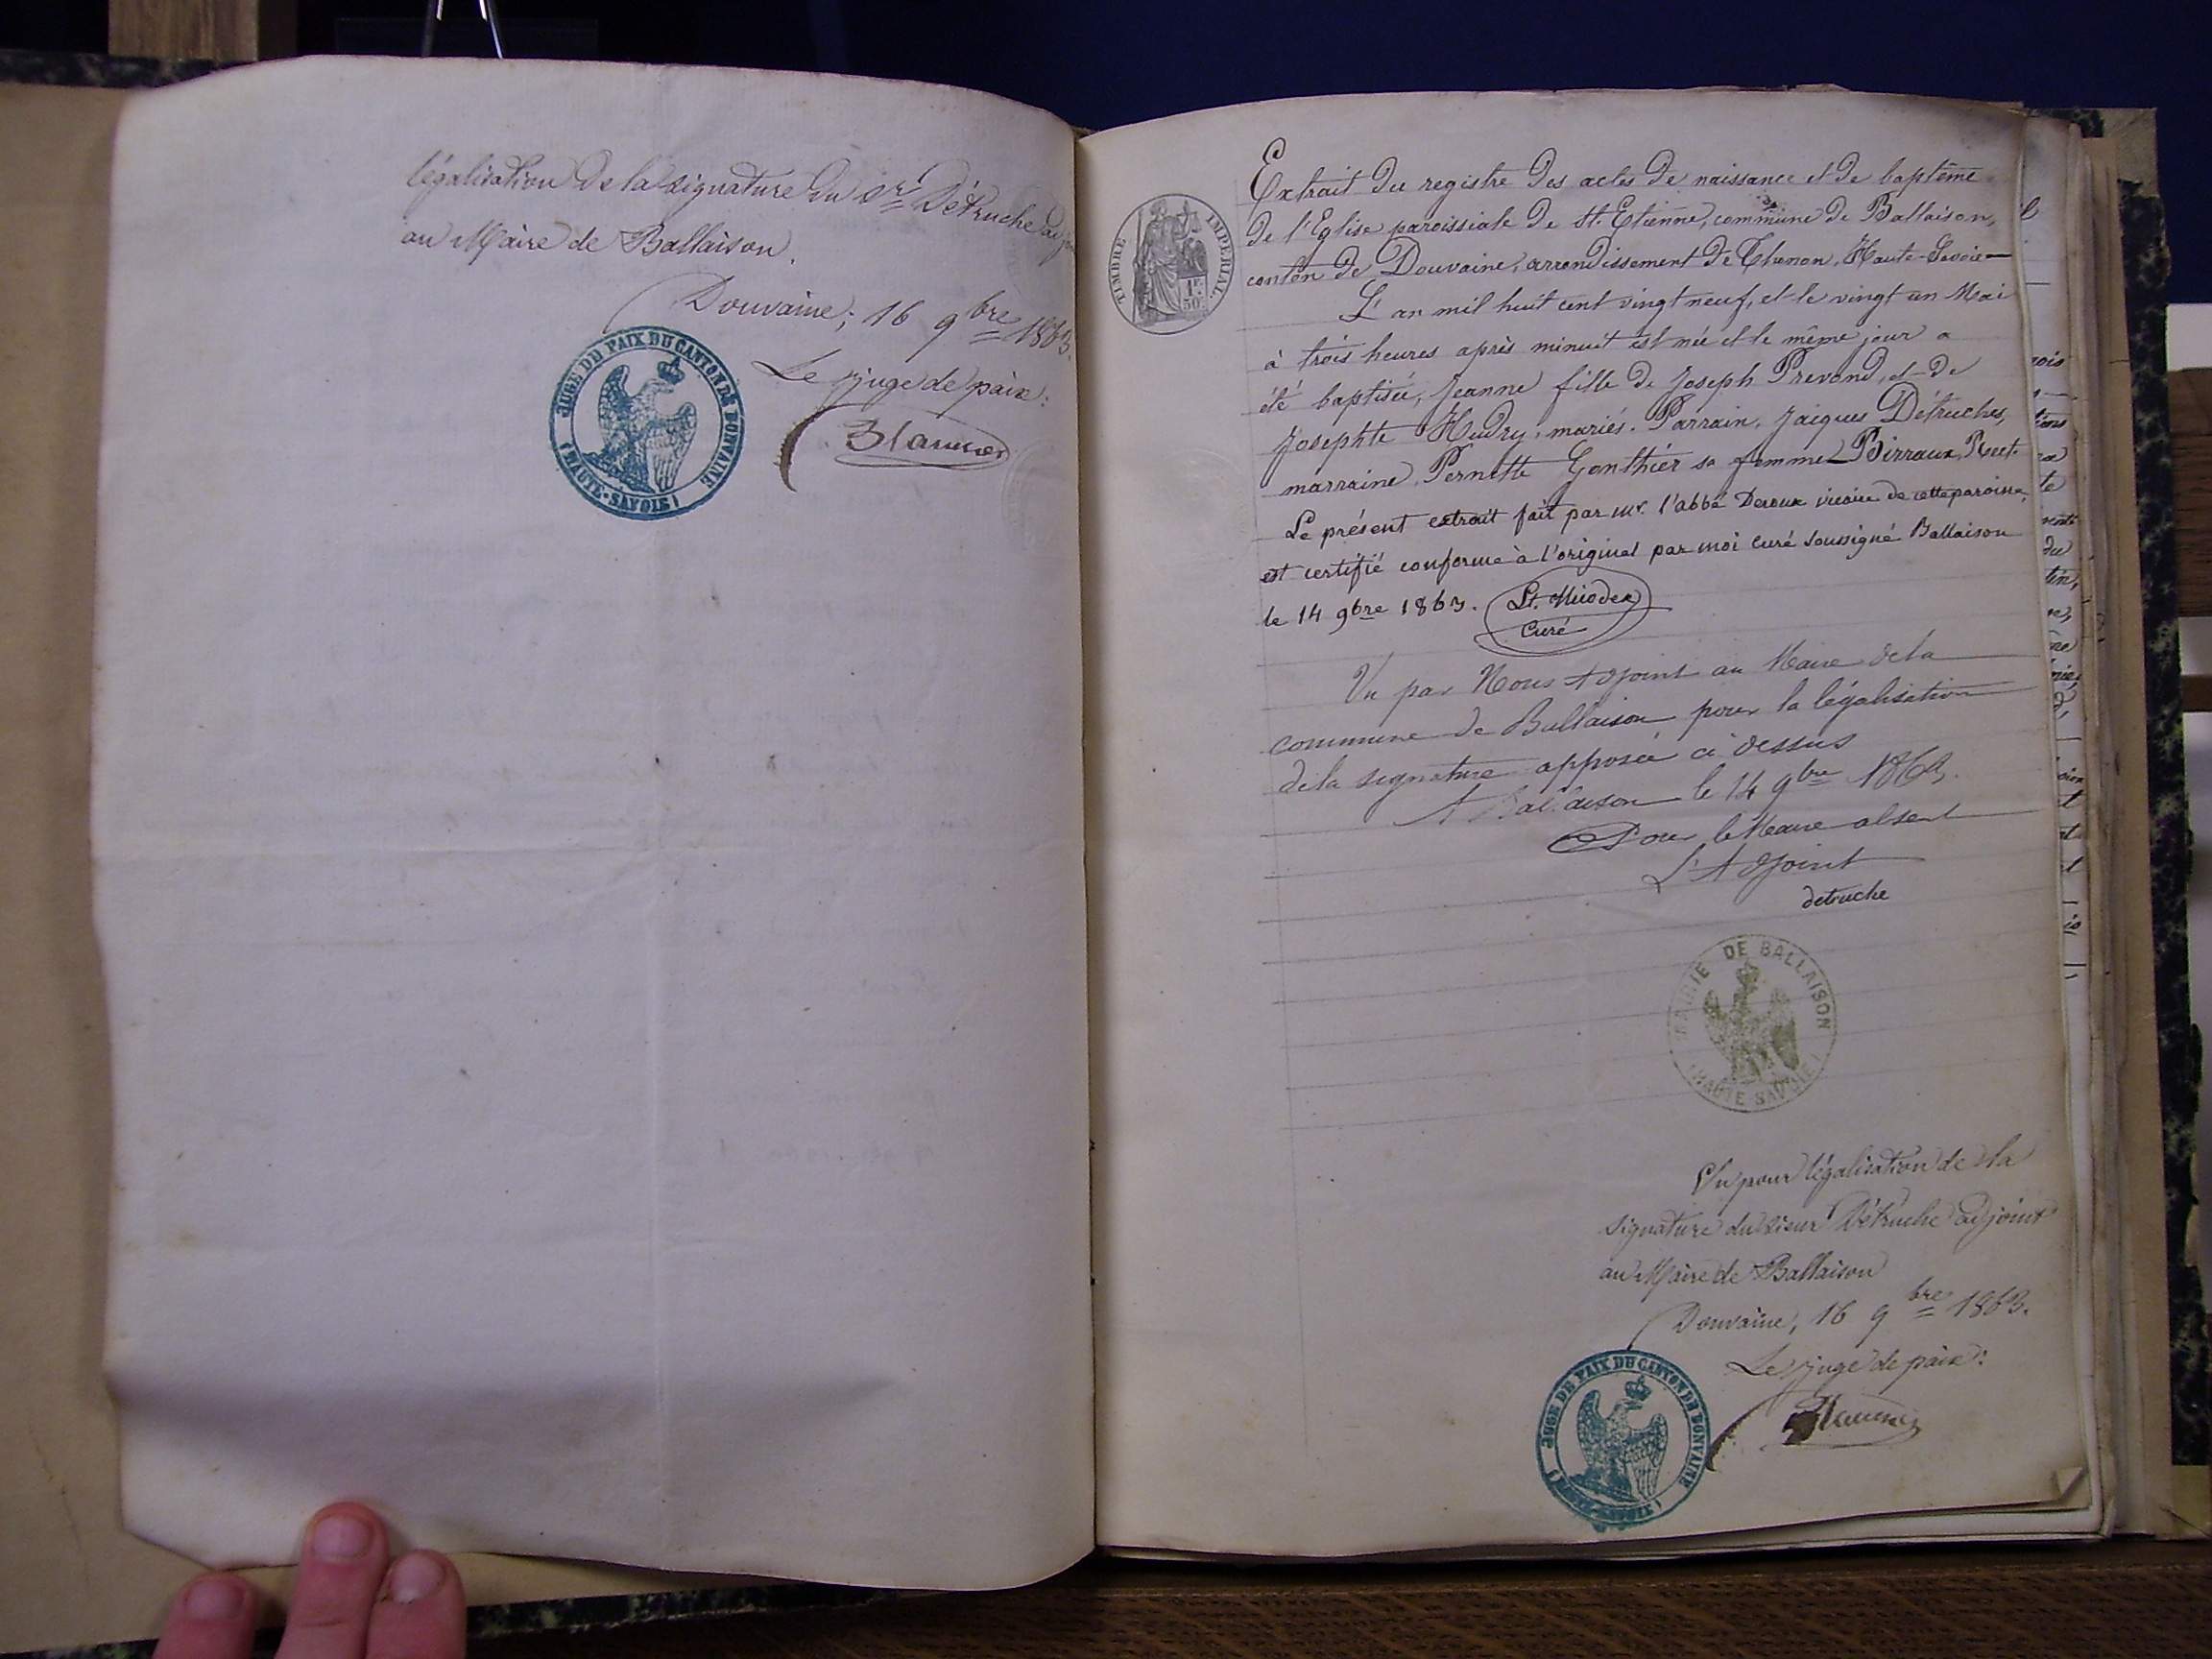 légalisation de la signature du Sr Détruche adj
au Maire de Ballaison.
Douvaine, 16 9bre 1863.
Le juge de paix:
JUGE DE PAIX DU CANTON DE DOUVAINE
(HAUTE-SAVOIE)
TIMBRE IMPERIAL
1F 50c
Extrait du registre des actes de naissance et de baptême
de l'Eglise paroissiale de St. Etienne, commune de Ballaison,
canton de Douvaine, arrondissement de Thonon, Haute-Savoie
L'an mil huit cent vingt neuf, et le vingt un Mai
à trois heures après minuit est née et le même jour a
été baptisée, Jeanne fille de Joseph Prevond, et de
Josephte Hudry, mariés. Parrain, Jacques Détruches,
marraine, Pernette Gonthier sa femme Birraux, Rect.
Le présent extrait fait par mr. l'abbé Deroux vicaire de cette paroisse,
est certifié conforme à l'original par moi curé soussigné Ballaison
le 14 9bre 1863.
Curé
Vu par Nous Adjoint au Maire de la
commune de Ballaison pour la légalisation
de la signature apposée ci dessus
A Ballaison le 14 9bre 1863.
Pour le Maire absent
L'Adjoint
detruche
MAIRIE DE BALLAISON
(HAUTE SAVOIE)
Vu pour légalisation de la
signature du sieur Détruche adjoint
au Maire de Ballaison
Douvaine, 16 9bre 1863.
Le juge de paix:
JUGE DE PAIX DU CANTON DE DOUVAINE
(HAUTE-SAVOIE)